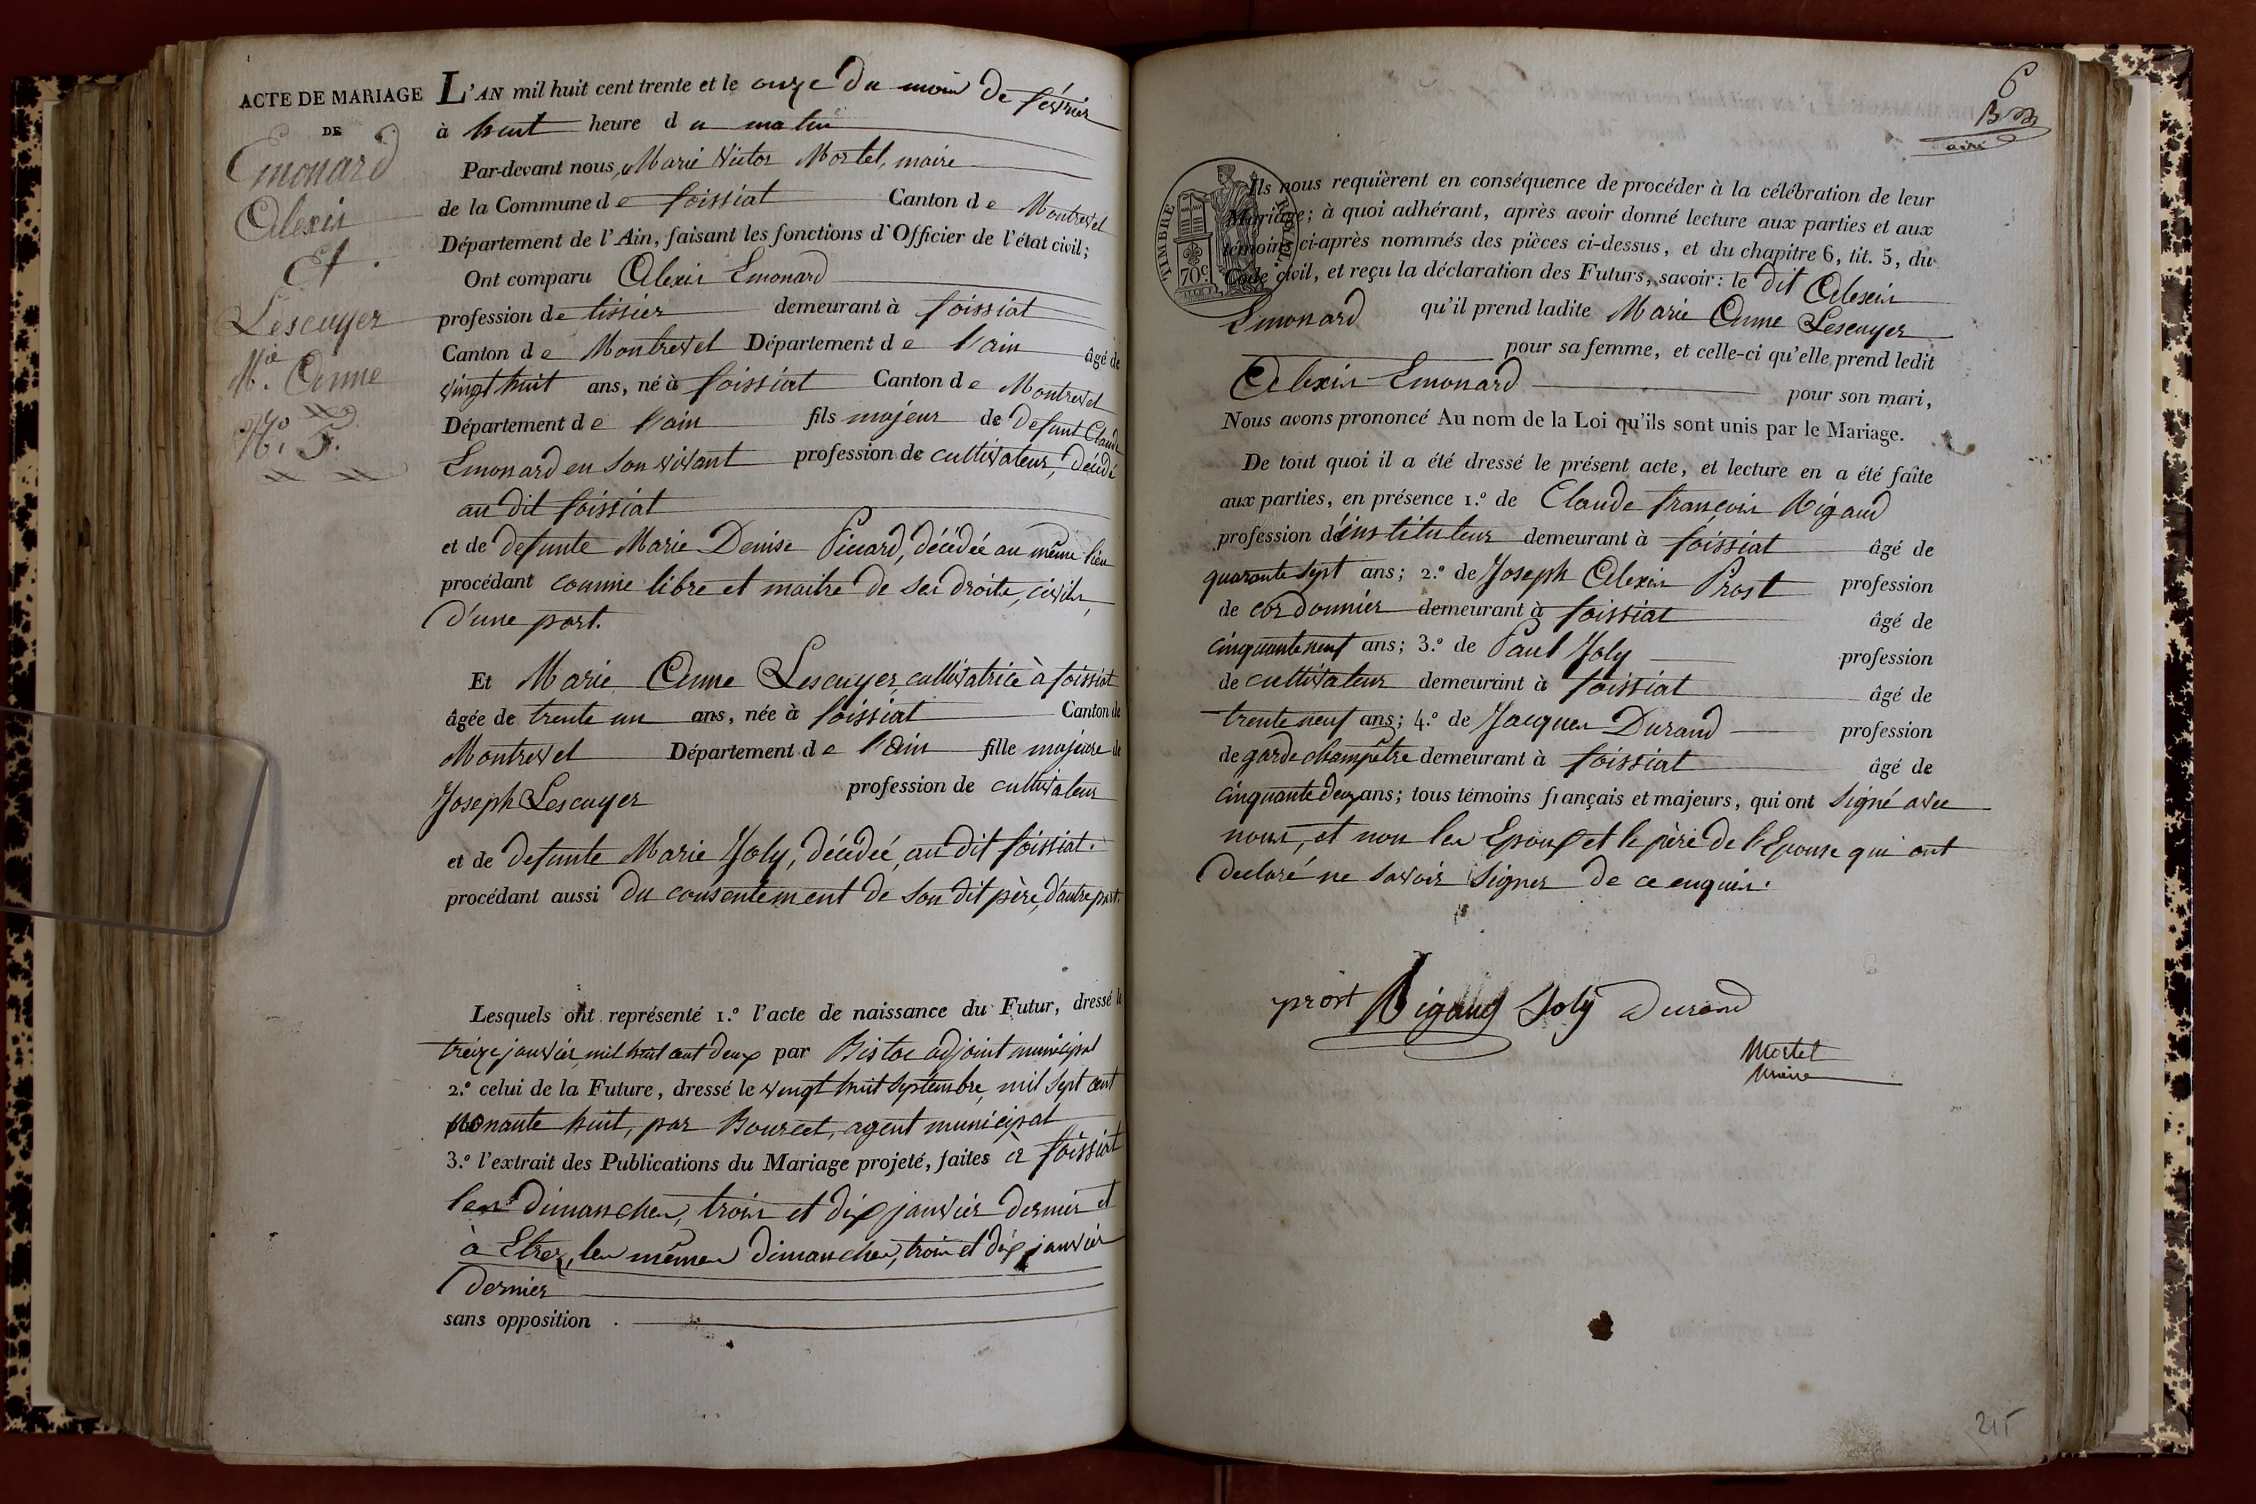 ACTE DE MARIAGE
DE
Emonard
Alexis
Et
Lescuyer
M.ie Anne
N.o 5.
L'AN mil huit cent trente et le onze du mois de février
à huit heure du matin
Par-devant nous, Marie Victor Mortel, maire
de la Commune de foissiat Canton de Montrevel
Département de l'Ain, faisant les fonctions d'Officier de l'état civil;
Ont comparu Alexis Emonard
profession de tissier demeurant à foissiat
Canton de Montrevel Département de l'ain âgé de
vingt huit ans, né à foissiat Canton de Montrevel
Département de l'ain fils majeur de défunt Claude
Emonard en son vivant profession de cultivateur, décédé
au dit foissiat
et de defunte Marie Denise Piccard, décédée au même lieu
procédant comme libre et maitre de ses droits, civils,
d'une part.
Et Marie Anne Lescuyer, cultivatrice à foissiat
âgée de trente un ans, née à foissiat Canton de
Montrevel Département de l'ain fille majeure de
Joseph Lescuyer profession de cultivateur
et de defunte Marie Joly, décédée, au dit foissiat.
procédant aussi du consentement de son dit père, d'autre part.
Lesquels ont représenté 1.o l'acte de naissance du Futur, dressé le
treize janvier mil huit cent deux par Bistoc adjoint municipal
2.o celui de la Future, dressé le vingt huit septembre, mil sept cent
nonante huit, par Bourcet, agent municipal
3.o l'extrait des Publications du Mariage projeté, faites à foissiat
les dimanches, trois et dix janvier dernier et
à Etrez, les mêmes dimanches, trois et dix janvier
dernier
sans opposition .
6
TIMBRE ROYAL.
70c.
Ils nous requièrent en conséquence de procéder à la célébration de leur
Mariage; à quoi adhérant, après avoir donné lecture aux parties et aux
témoins ci-après nommés des pièces ci-dessus, et du chapitre 6, tit. 5, du
Code civil, et reçu la déclaration des Futurs, savoir: le dit Alexis
Emonard qu'il prend ladite Marie Anne Lescuyer
pour sa femme, et celle-ci qu'elle prend ledit
Alexis Emonard pour son mari,
Nous avons prononcé Au nom de la Loi qu'ils sont unis par le Mariage.
De tout quoi il a été dressé le présent acte, et lecture en a été faite
aux parties, en présence 1.o de Claude françois Rigaud
profession d'instituteur demeurant à foissiat âgé de
quarante sept ans; 2.o de Joseph Alexis Prost profession
de cordonnier demeurant à foissiat âgé de
cinquante neuf ans; 3.o de Paul Joly profession
de cultivateur demeurant à foissiat âgé de
trente neuf ans; 4.o de Jacques Durand profession
de garde champêtre demeurant à foissiat âgé de
cinquante deux ans; tous témoins français et majeurs, qui ont signé avec
nous, et non les Epoux et le père de l'Epouse qui ont
declaré ne savoir signer de ce enquis.
prost Rigaud Joly Durand
Mortel
maire
215